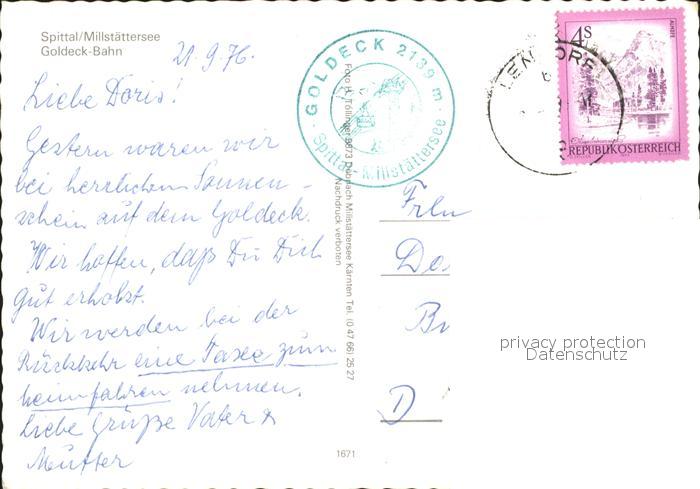 Spittal/Millstättersee
Goldeck-Bahn
21.9.76.
Liebe Doris!
Gestern waren wir
bei herrlichem Sonnen-
schein auf dem Goldeck.
Wir hoffen, daß Du Dich
gut erholst.
Wir werden bei der
Rückkehr eine Taxe zum
heimfahren nehmen.
Liebe Grüße Vater &
Mutter
GOLDECK 2139 m
Spittal/Millstättersee
Foto H. Töllinger 9873 Döbriach Millstättersee Kärnten Tel. (0 47 66) 25 27
Nachdruck verboten
1671
4S
REPUBLIK ÖSTERREICH
Frln
Do
Br
D
privacy protection
Datenschutz